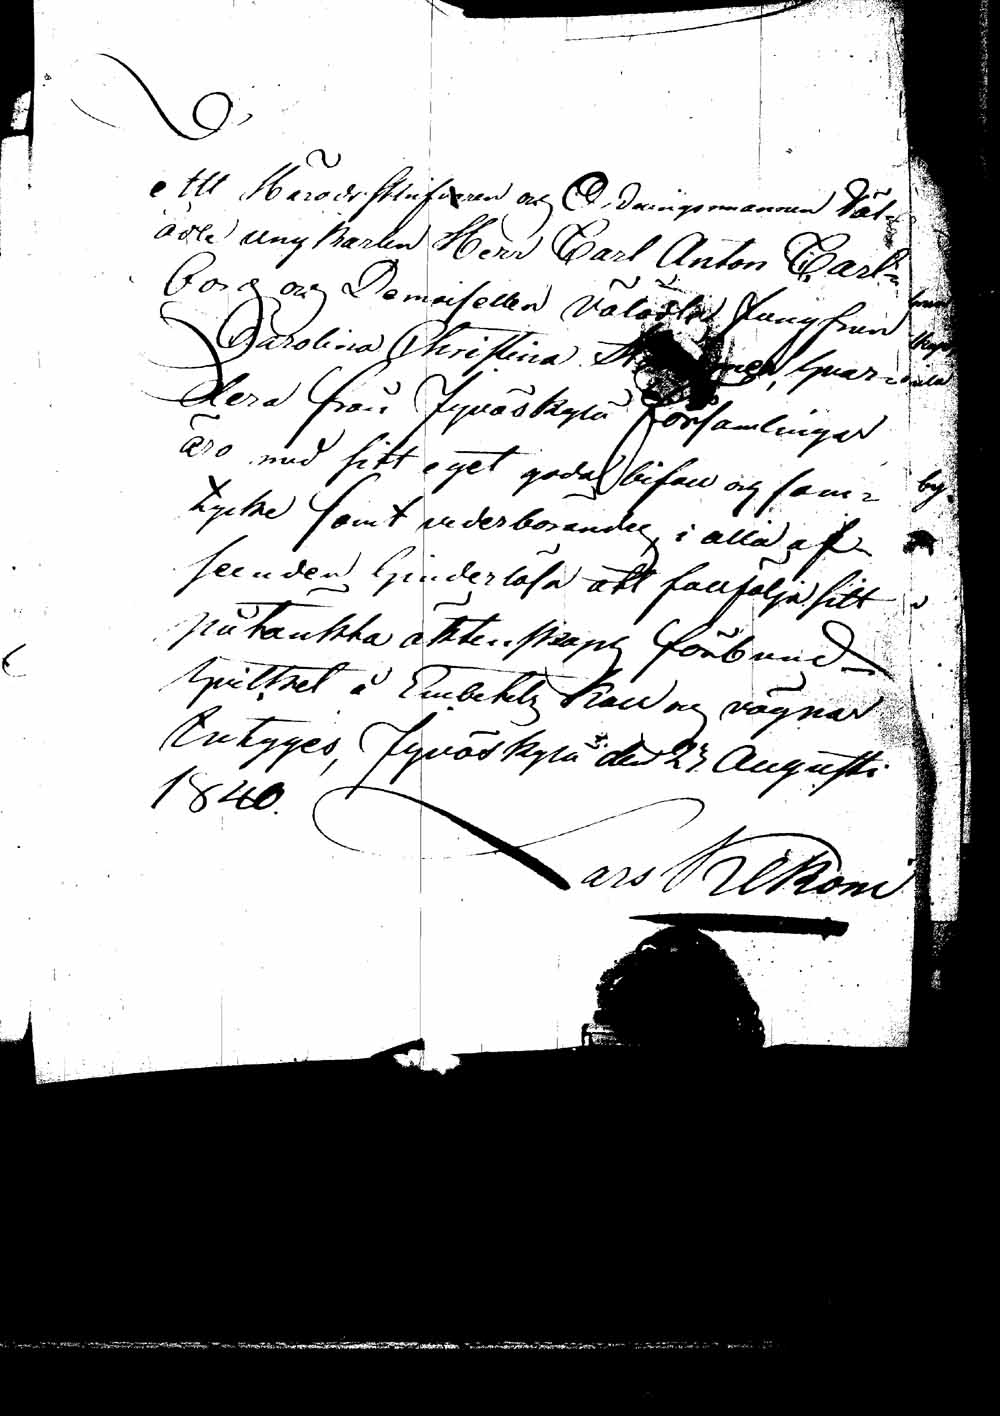 att Häradsskrifvaren och Ordningsmannen Väl-
ädle ungkarlen Herr Carl Anton Carl-
borg och Demoisellen Välädla Jungfrun
Carolina Christina hvar-
dera från Jyväskylä Församlingar
äro med sitt eget goda bifall och sam-
tycke samt vederbörandes i alla af-
seenden hinderlösa att fullfölja sitt
påtänkta äktenskaps förbund
hvilket å Embetets kall och vägnar
Intygges, Jyväskylä den 27 Augusti
1840.
Lars
by.